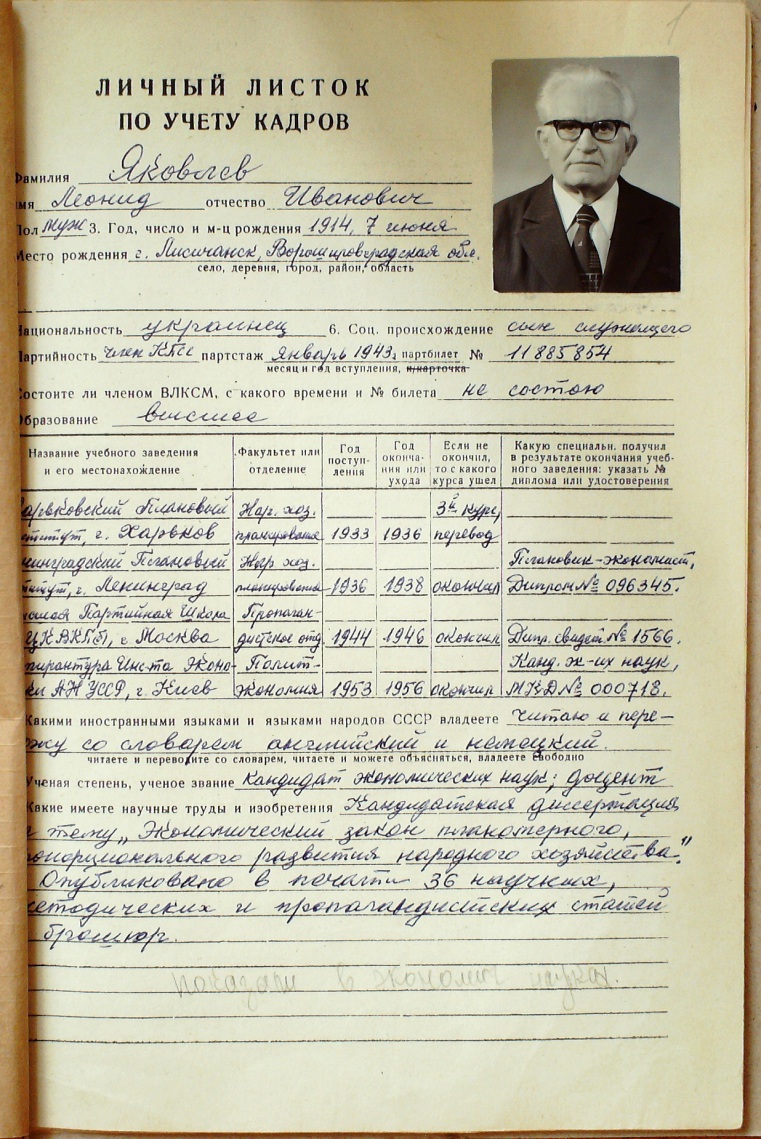 1
ЛИЧНЫЙ ЛИСТОК
ПО УЧЕТУ КАДРОВ
Фамилия Яковлев
мя Леонид отчество Иванович
Пол муж 3. Год, число и м-ц рождения 1914, 7 июня
Место рождения г. Лисичанск, Ворошиловградская обл.
село, деревня, город, район, область
Национальность украинец 6. Соц. происхождение сын служащего
Партийность член КПСС партстаж январь 1943, партбилет № 11885854
месяц и год вступления, и/карточка
Состоите ли членом ВЛКСМ, с какого времени и № билета не состою
Образование высшее
Название учебного заведения и его местонахождение Факультет или отделение Год поступления Год окончания или ухода Если не окончил, то с какого курса ушел Какую специальн. получил в результате окончания учебного заведения: указать № диплома или удостоверения
арьковский Плановый Нар. хоз. 3й курс,
ститут, г. Харьков планирования 1933 1936 перевод
нинградский Плановый Нар. хоз. Плановик-экономист,
титут, г. Ленинград планирования 1936 1938 окончил Диплом № 096345.
сшая Партийная Школа Пропаган-
ЦК ВКП(б), г. Москва дистское отд 1944 1946 окончил Дипл. свидет. № 1566.
пирантура Инс-та Эконо- Полит- Канд. эк-их наук,
ки АН УССР, г. Киев экономия 1953 1956 окончил МКД № 000718.
Какими иностранными языками и языками народов СССР владеете читаю и пере-
жу со словарем английский и немецкий.
читаете и переводите со словарем, читаете и можете объясняться, владеете свободно
Ученая степень, ученое звание Кандидат экономических наук; доцент
Какие имеете научные труды и изобретения Кандидатская диссертация
а тему „Экономический закон планомерного,
ропорционального развития народного хозяйства."
Опубликовано в печати 36 научных,
етодических и пропагандистских статей
брошюр.
показать в эконом. науках.